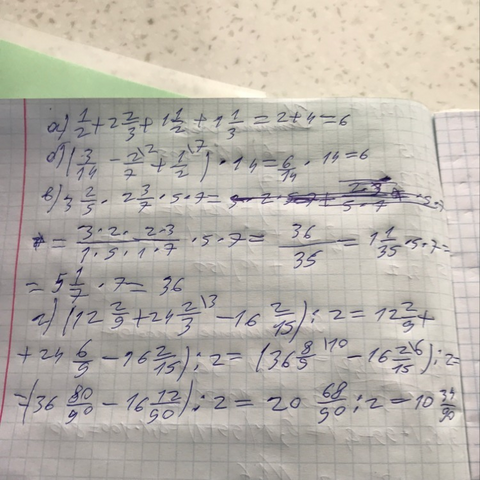 а) 1/2 + 2 2/3 + 1 1/2 + 1 1/3 = 2 + 4 = 6
б) (3/14 - 2/7 \2 + 1/2 \7) · 14 = 6/14 · 14 = 6
в) 3 2/5 · 2 3/7 · 5 · 7 =
= 3·2·2·3/1·5·1·7 · 5 · 7 = 36/35 = 1 1/35 · 5 · 7 =
= 5 1/7 · 7 = 36
г) (12 2/9 + 24 2/3 \3 - 16 2/15) : 2 = 12 2/9 +
+ 24 6/9 - 16 2/15) : 2 = (36 8/9 \10 - 16 2/15 \6) : 2 =
= (36 80/90 - 16 12/90) : 2 = 20 68/90 : 2 = 10 34/90